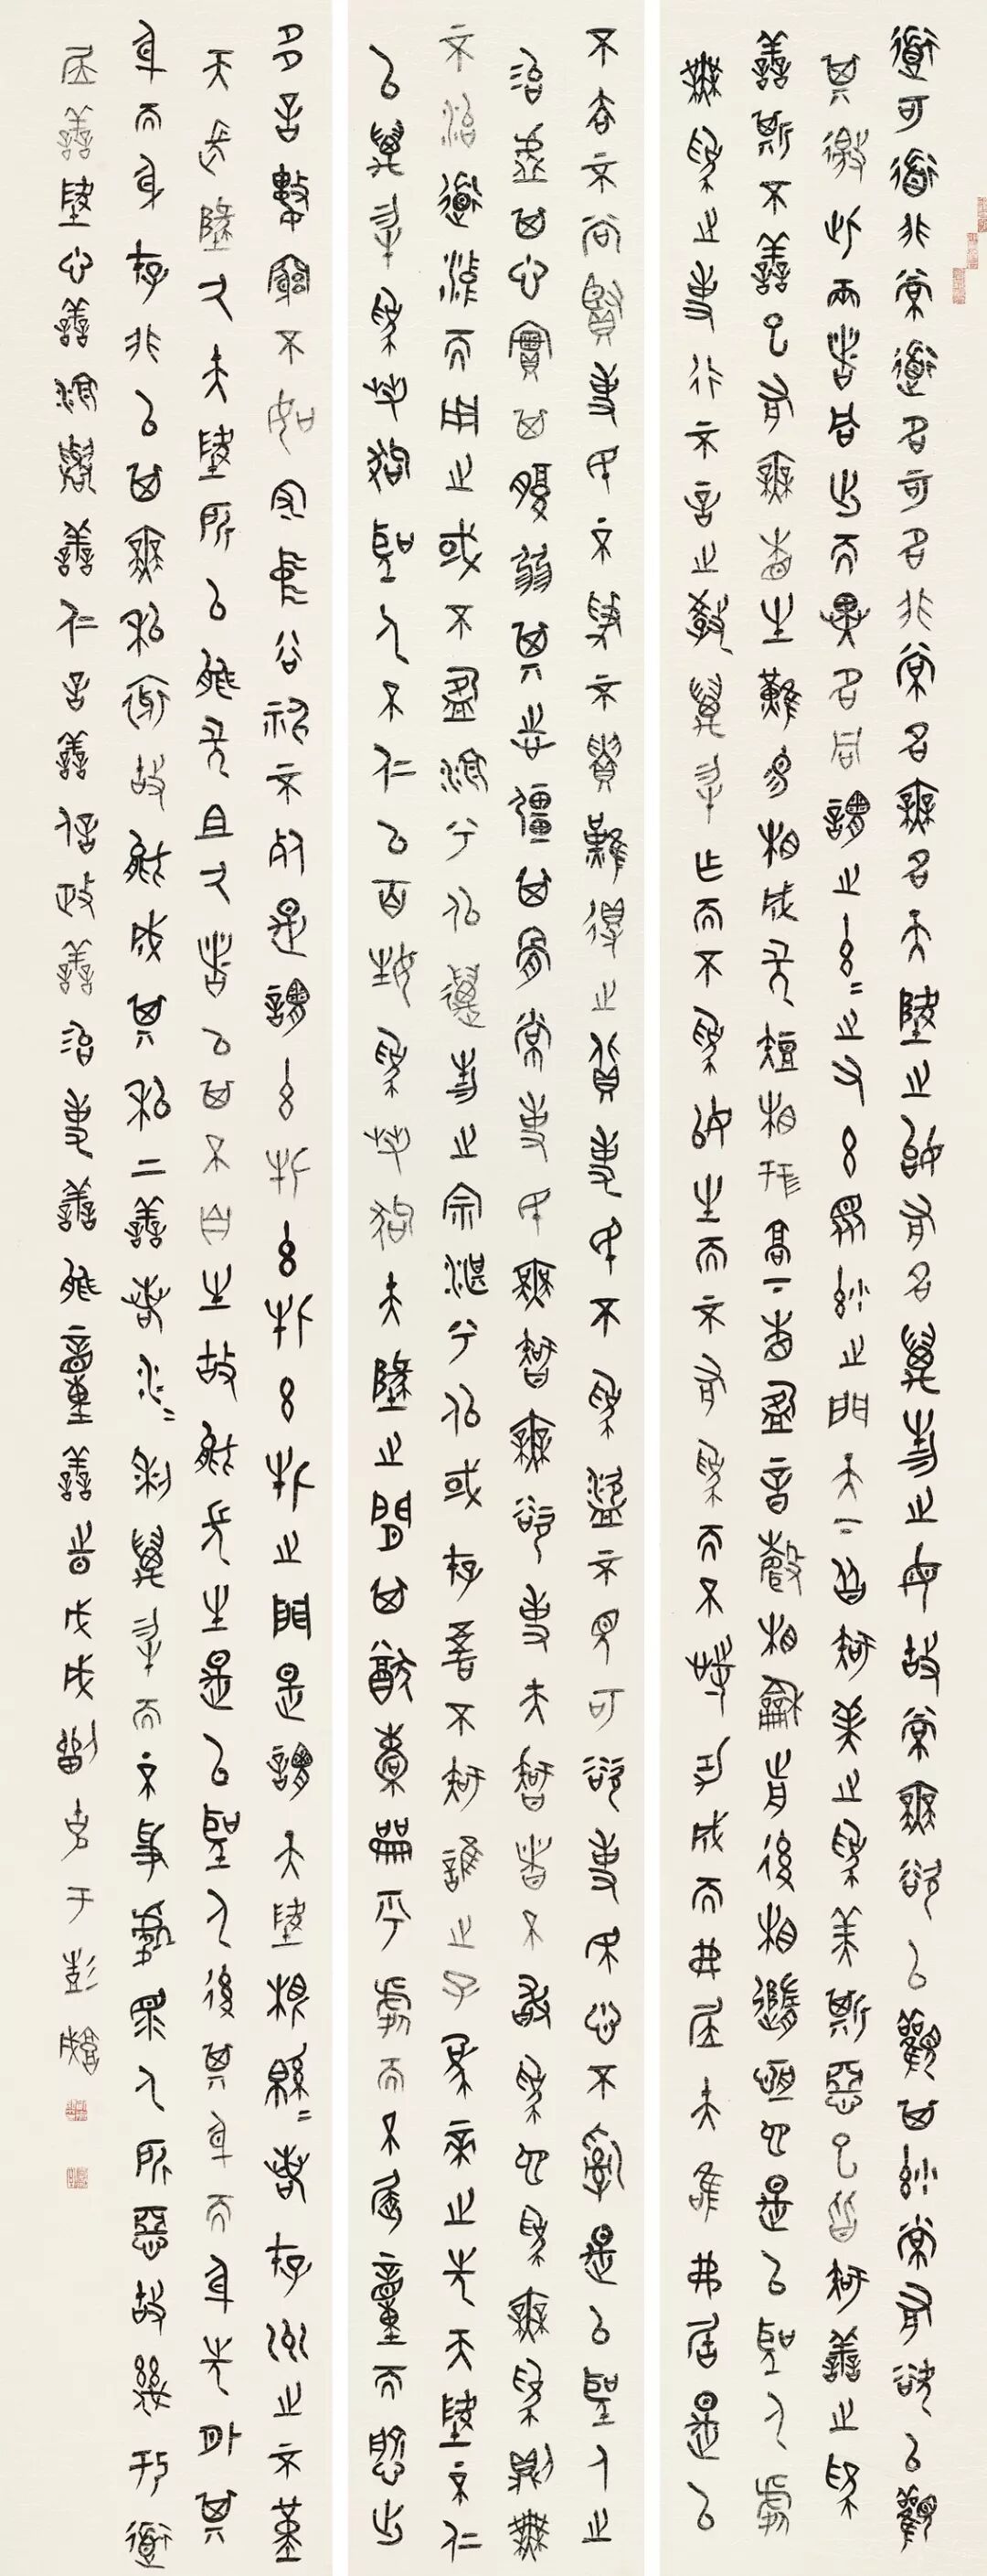 道可道非常道名可名非常名無名天地之始有名萬物之母故常無欲以觀其妙常有欲以觀
其徼此兩者同出而異名同謂之玄玄之又玄眾妙之門天下皆知美之為美斯惡已皆知善之為
善斯不善已有無相生難易相成長短相形高下相盈音聲相和前後相隨恆也是以聖人處
無為之事行不言之教萬物作而不為始生而不有為而不恃功成而弗居夫唯弗居是以
不去不尚賢使民不爭不貴難得之貨使民不為盜不見可欲使民心不亂是以聖人之
治虛其心實其腹弱其志強其骨常使民無知無欲使夫知者不敢為也為無為則無
不治道沖而用之或不盈淵兮似萬物之宗湛兮似或存吾不知誰之子象帝之先天地不仁
以萬物為芻狗聖人不仁以百姓為芻狗天地之間其猶橐籥乎虛而不屈動而愈出
多言數窮不如守中谷神不死是謂玄牝玄牝玄牝之門是謂天地根緜緜若存用之不堇
天長地久天地所以能長且久者以其不自生故能長生是以聖人後其身而身先外其
身而身存非以其無私邪故能成其私上善若水水利萬物而不爭處眾人所惡故幾於道
居善地心善淵與善仁言善信政善治事善能動善時戊戌劉于彭城